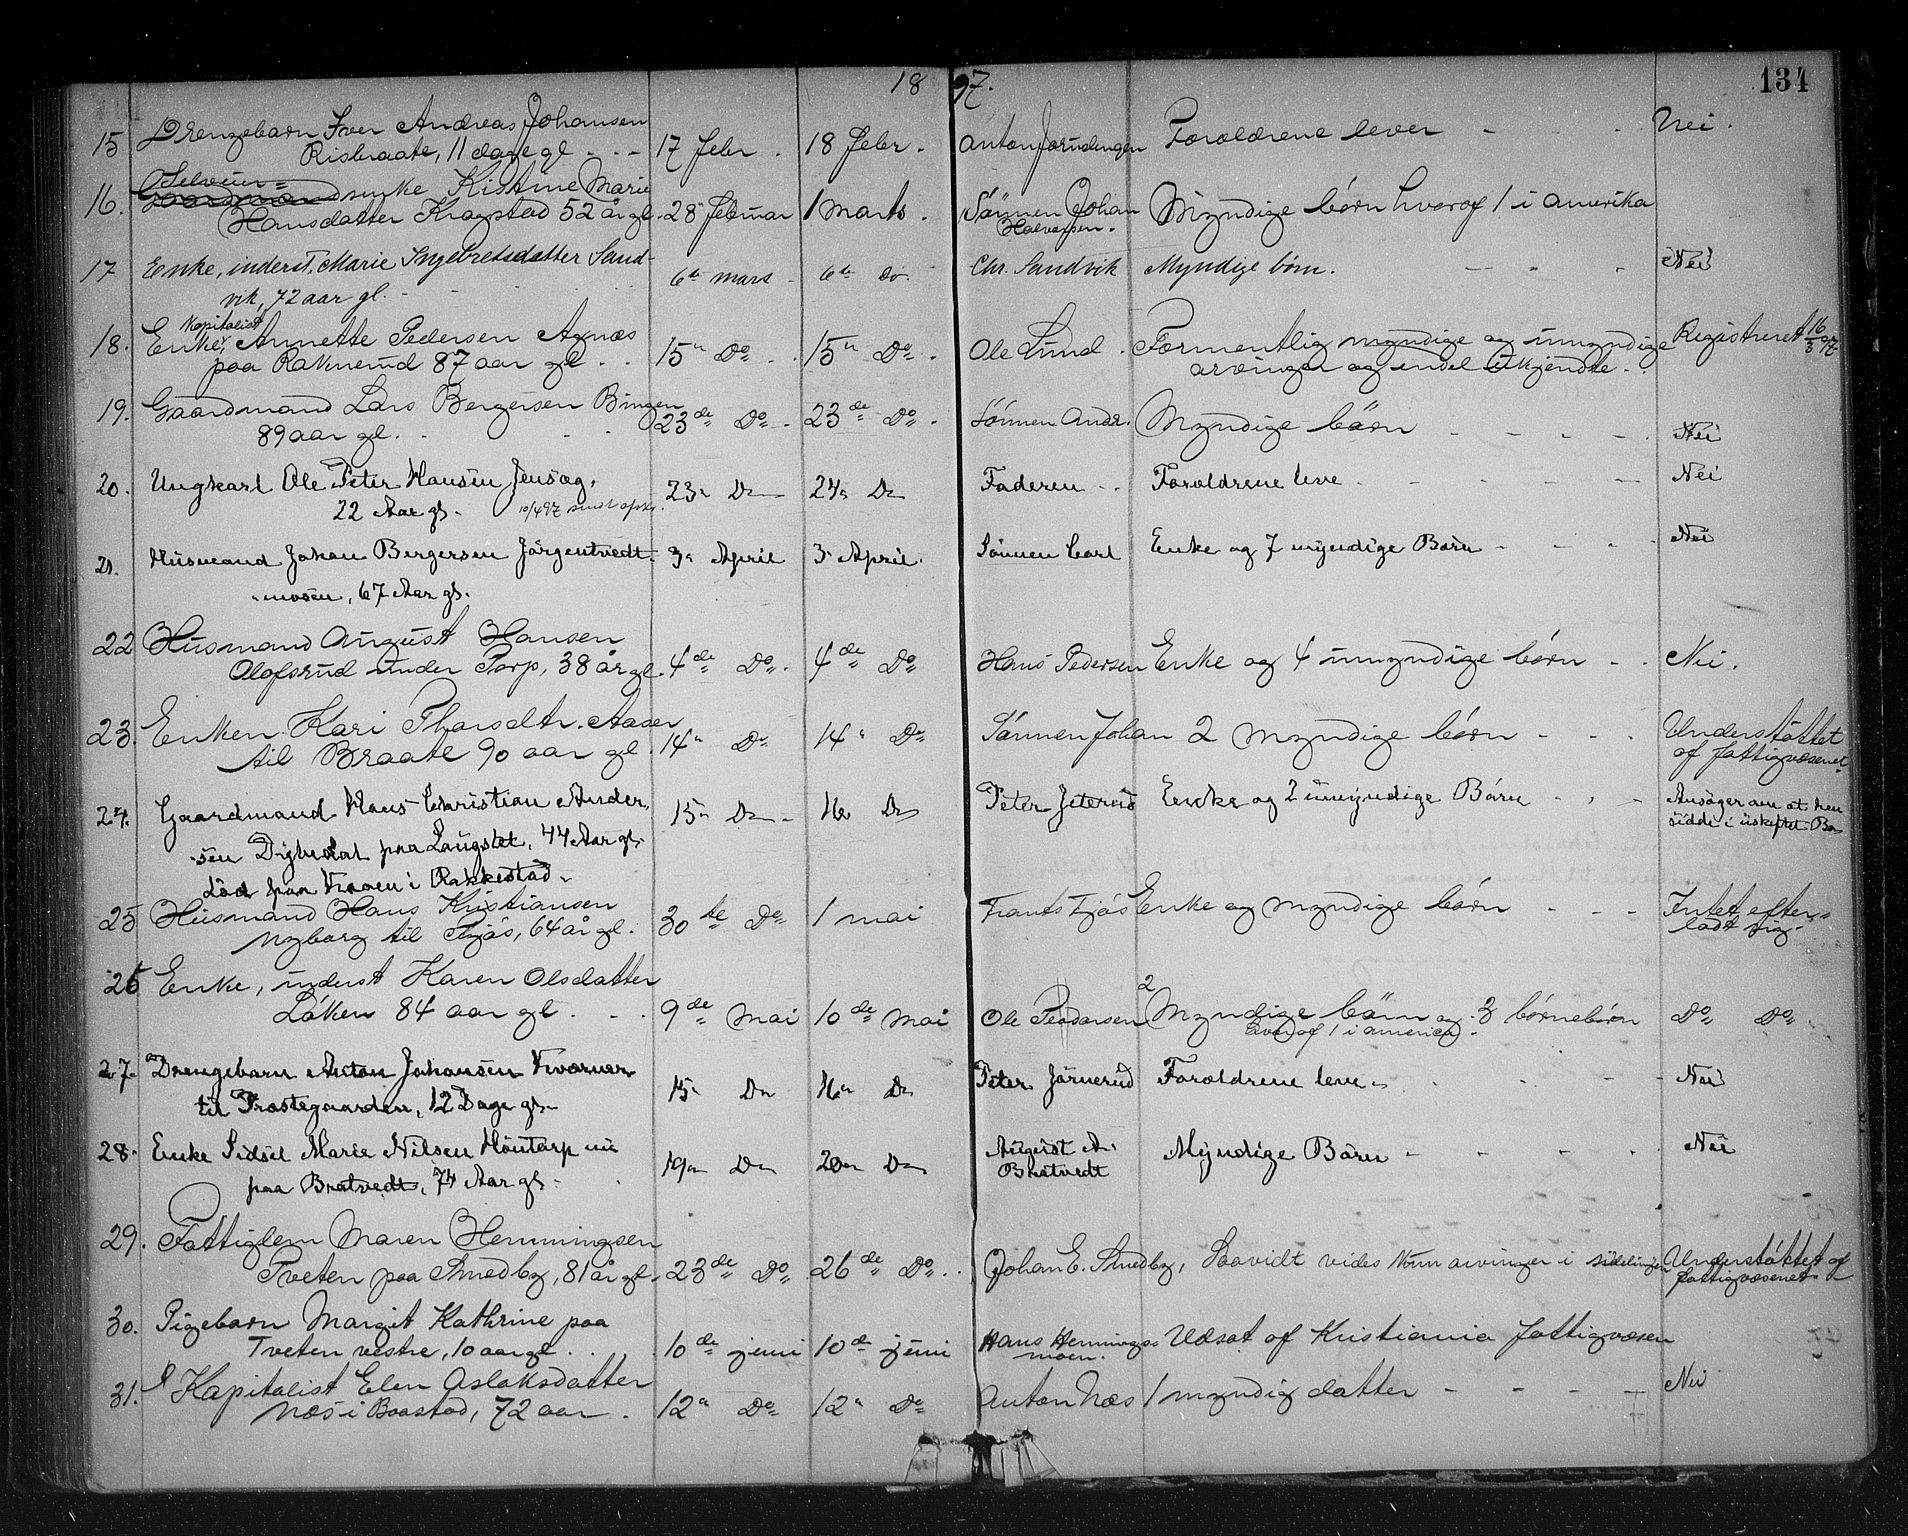 1897.
134
15 Drengebarn Iver Andreas Johansen
Risbraate, 11 dage gl. - - 17 Febr. 18 Febr. Anton Jorudengen Foroldrene lever - - Nei.
Selveier=
16. Gaardmandsenke Kistine Marie
Hansdatter Kragstad 52 år gl. 28 Februar 1 marts. Sönnen Johan Myndige börn hvoraf 1 i amerika
Halvorsen.
17 Enke, inderst, Marie Ingebretsdatter Sand-
vik, 72 aar gl. 6te mars 6te do. Chr. Sandvik Myndige börn. - - Nei
Kapitalist
18. Enke, Annette Pedersen Agnæs
paa Raknerud 87 aar gl. 15n Do 15n Do Ole Lund. Formentlig myndige og umyndige Registreret 16/3 97
arvinger og endel Ukjendte.
19. Gaardmand Lars Bergersen Bingen
89 aar gl. 23de Do 23de Do Sönnen Andr. Myndige börn - - - - Nei
20. Ungkarl Ole Peter Hansen Jensæg,
22 Aar gl. 10/4 97 sendt 23n Do 24n Do Faderen Foroldrene leve - - - Nei
21. Husmand Johan Bergersen Jörgentvedt-
mosen, 67 Aar gl. 3n April 3n April. Sönnen Carl Enke og 7 myndige Börn - - - Nei
22 Husmand August Hansen
Olofsrud under Torp, 38 år gl. 4de Do 4de Do Hans Pedersen Enke og 4 umyndige börn - - Nei.
23. Enken Kari Thorsdtr. Aaser
til Braate 90 aar gl. 14n Do 14n Do Sönnen Johan 2 myndige börn - - - Understöttet
af fattigvæsenet.
24. Gaardmand Hans Christian Ander-
sen paa Langstet, 44 Aar gl. 15n Do 16 Do Peter Enke og 2 umyndige Börn - - - Ansöger om at hen
sidde i uskiftet Bo
död paa i Rakkestad.
25 Husmand Hans Kristiansen
Nyborg til Fjös, 64 år gl. 30te Do 1 mai Frants Fjös Enke og myndige börn - - - Intet efter=
ladt sig.
26 Enke, inderst Karen Olsdatter
Löken 84 aar gl. 9de Mai 10de Mai Ole Pedersen 2 Myndige börn og 3 börnebörn Do Do
hvoraf 1 i america.
27. Drengebarn Anton Johansen Kværner
til Prestegaarden, 12 Dage gl. 15n Do 16n Do Peter Järnerud Foroldrene leve - - Nei
28. Enke Sidsel Marie Nilsen Höntorp nu
paa Bratvedt, 74 Aar gl. 19n Do 20n Do August A. Bratvedt Myndige Börn - - - - Nei
29. Fattiglem Maren Hemmingsen
Tveten paa Smedby, 81 år gl. 23de Do 26de Do Johan E. Smedby, Saavidt vides kun arvinger i sidelinjen Understöttet af
fattigvæsenet
30. Pigebarn Margit Kathrine paa
Tveten vestre, 10 aar gl. 10de juni 10de juni Hans Hemmings= Udsat af Kristiania fattigvæsen
moen.
31. Kapitalist Elen Aslaksdatter
Næs i Baastad, 72 aar. 12n Do 12n Do Anton Næs 1 myndig datter - - - - Nei